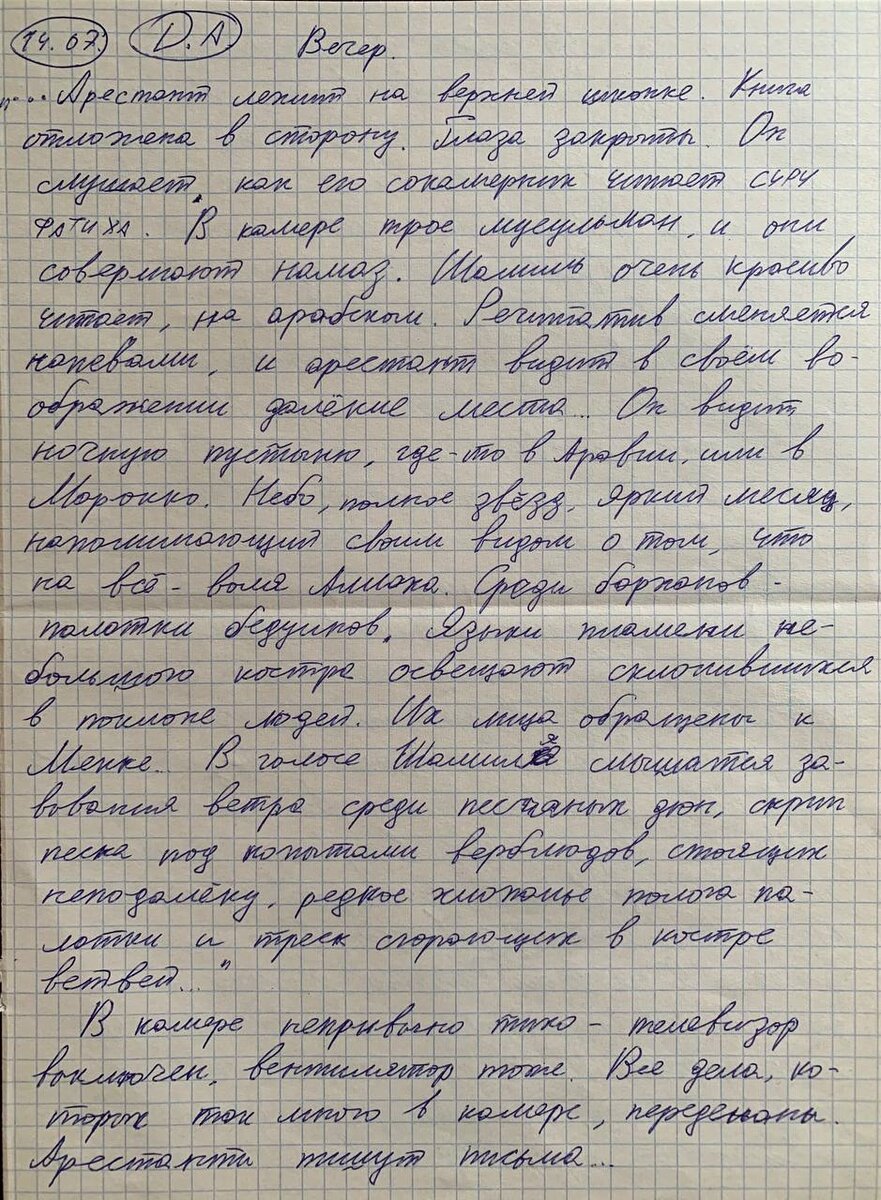 14.07. D.A Вечер.
"...Арестант лежит на верхней шконке. Книга
отложена в сторону. Глаза закрыты. Он
слушает, как его сокамерник читает СУРУ
ФАТИХА. В камере трое мусульман, и они
совершают намаз. Шамиль очень красиво
читает, на арабском. Речитатив сменяется
напевами, и арестант видит в своём во-
ображении далёкие места... Он видит
ночную пустыню, где-то в Аравии, или в
Марокко. Небо, полное звёзд, яркий месяц,
напоминающий своим видом о том, что
на всё - воля Аллаха. Среди барханов -
палатки бедуинов. Языки пламени не-
большого костра освещают склонившихся
в поклоне людей. Их лица обращены к
Мекке... В голосе Шамиля слышатся за-
вывания ветра среди песчаных дюн, скрип
песка под копытами верблюдов, стоящих
неподалёку, редкое хлопанье полога па-
латки и треск сгорающих в костре
ветвей..."
В камере непривычно тихо - телевизор
выключен, вентилятор тоже. Все дела, ко-
торых так много в камере, переделаны.
Арестанты пишут письма...